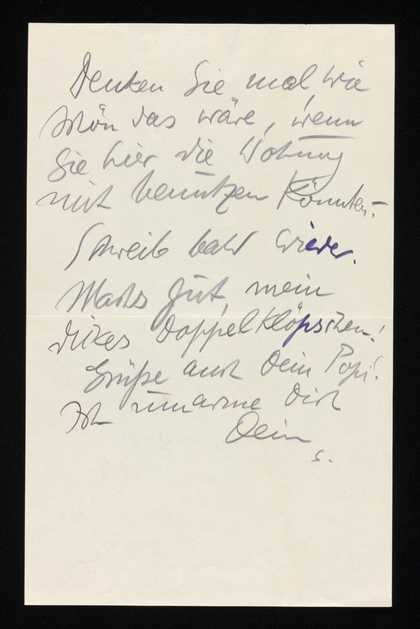 Denken Sie mal, wie
schön das wäre, wenn
Sie hier die Wohnung
mit benutzen könnten –
Schreib bald wieder.
Machs gut, mein
dikes Doppelklöpschen!
Grüße auch Dein Papi!
Ich umarme Dich
Dein
S.